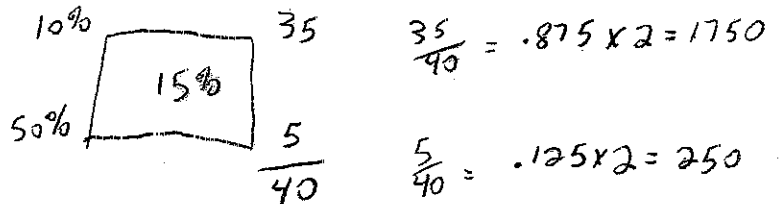 10% 35
15%
50% 5
40
35/40 = .875 x 2 = 1750
5/40 = .125 x 2 = 250